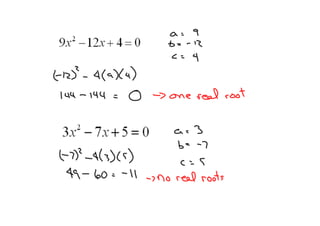 9x² − 12x + 4 = 0
a = 9
b = −12
c = 4
(−12)² − 4(9)(4)
144 − 144 = 0 → one real root
3x² − 7x + 5 = 0
a = 3
b = −7
c = 5
(−7)² − 4(3)(5)
49 − 60 = −11 → no real roots